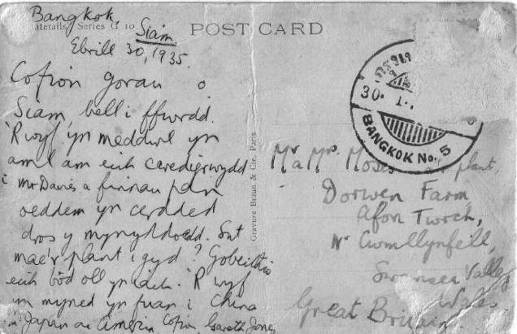 Bangkok,
Siam
Ebrill 30, 1935.
POST CARD
Cofion gorau o
Siam, bell i ffwrdd.
'R wyf yn meddwl yn
aml am eich caredigrwydd
i Mr Davies a finnau pan
oeddem yn cerdded
dros y mynyddoedd. Sut
mae'r plant i gyd? Gobeithio
eich bod oll yn iach. 'R wyf
yn myned yn fuan i China
a Japan ac America Cofion Gareth Jones
Gravure Braun & Cie, Paris
BANGKOK No. 5
30.
Mr a Mrs Moses plant,
Dorwen Farm
Afon Twrch,
Nr Cwmllynfell,
Swansea Valley
Wales
Great Britain